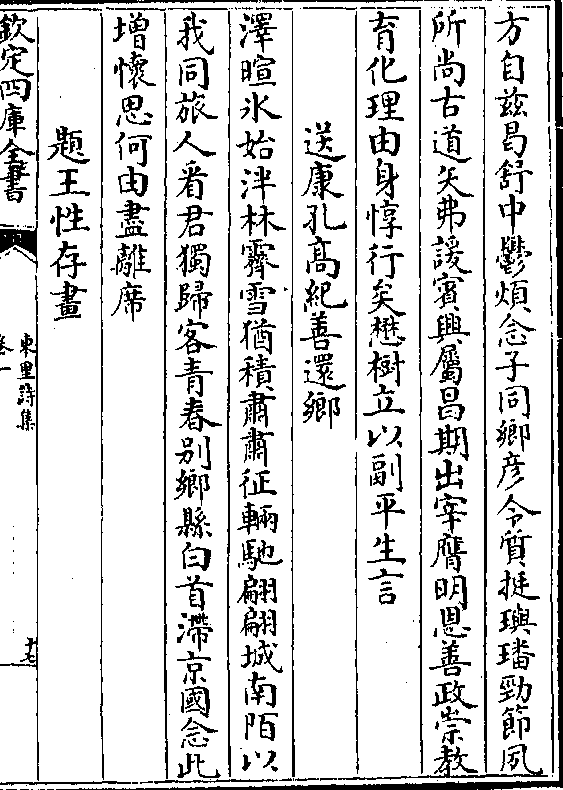 方自茲曷舒中鬱煩念子同鄉彥令質挺璵璠勁節夙
所尚古道矢弗諼賓興屬昌期出宰膺明恩善政崇教
育化理由身惇行矣懋樹立以副平生言
送康孔高紀善還鄉
澤暄氷始泮林霽雪猶積肅肅征輛馳翩翩城南陌以
我同旅人看君獨歸客青春别鄉縣白首滯京國念此
增懷思何由盡離席
題王性存畫
欽定四庫全書
東里詩集
卷一
十七